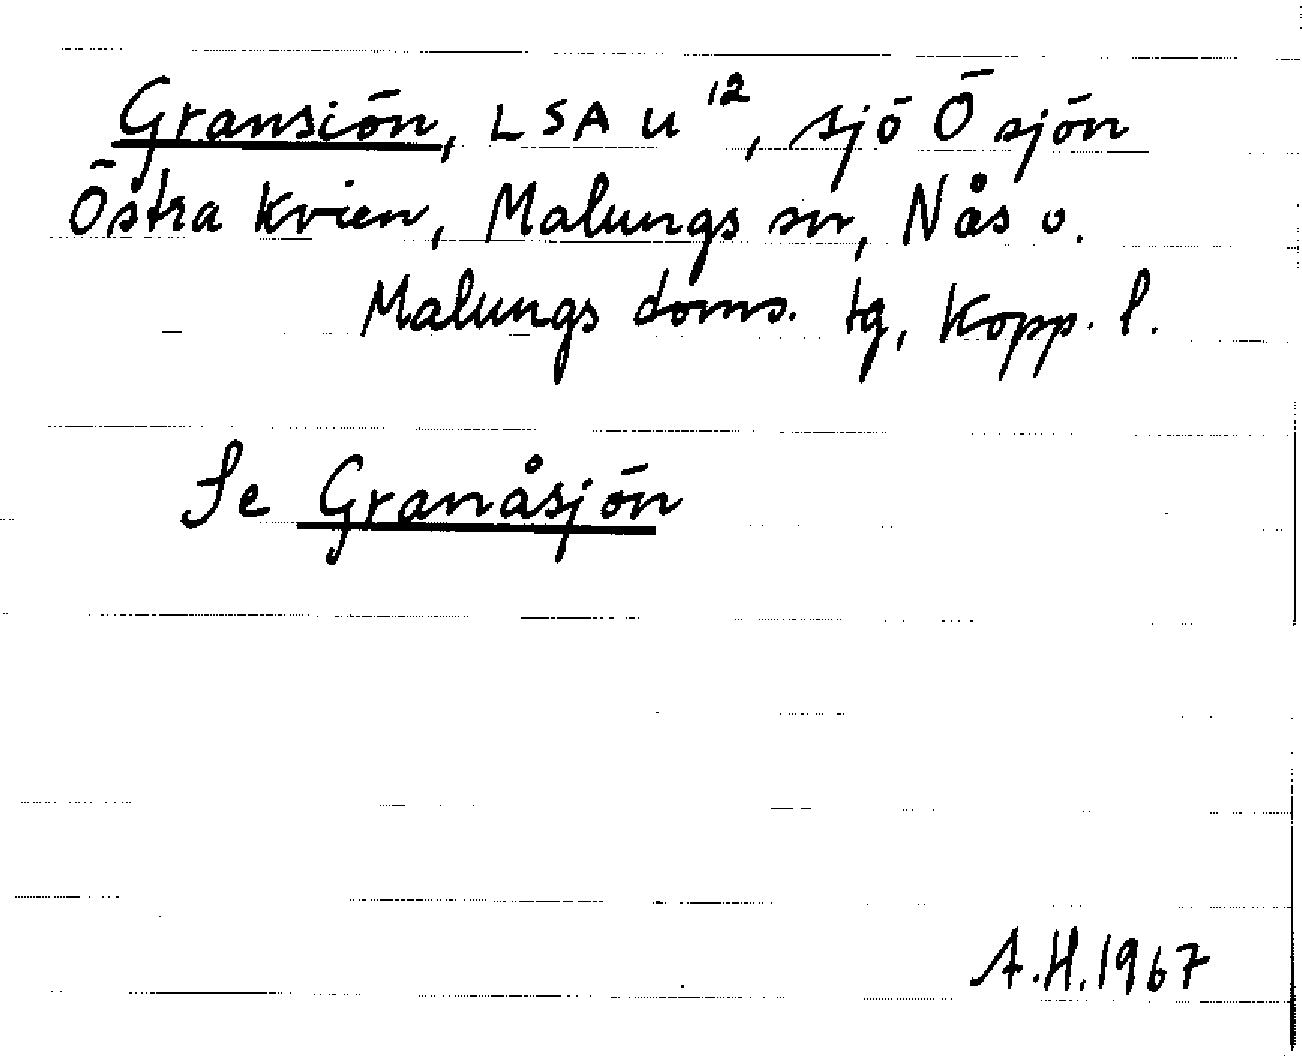 Gransiön, LSA U¹², sjö Ö sjön
Östra Kvien, Malungs sn, Nås o.
Malungs doms. tg, Kopp. l.
Se Granåsjön
A.H. 1967